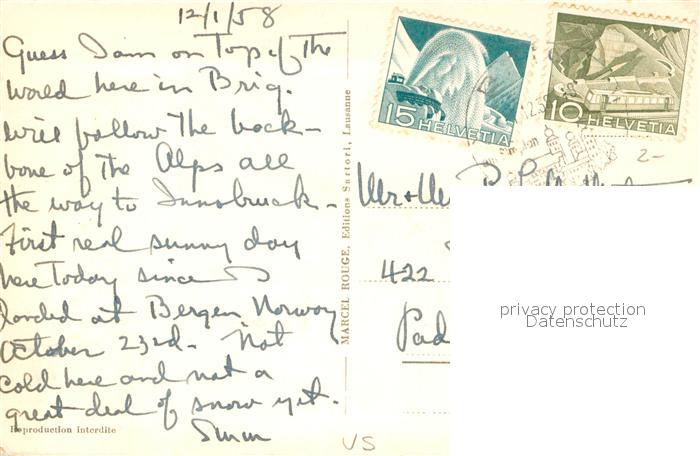 12/1/58
Guess I am on Top of The
world here in Brig.
will follow The back-
bone of The Alps all
The way to Innsbruck -
First real sunny day
here Today since I
landed at Bergen Norway
October 23rd - Not
cold here and not a
great deal of snow yet.
Reproduction interdite
MARCEL ROUGE, Editions Sartori, Lausanne
15 HELVETIA
10 HELVETIA
2-
Mr + Mr
422
Pad
privacy protection
Datenschutz
VS